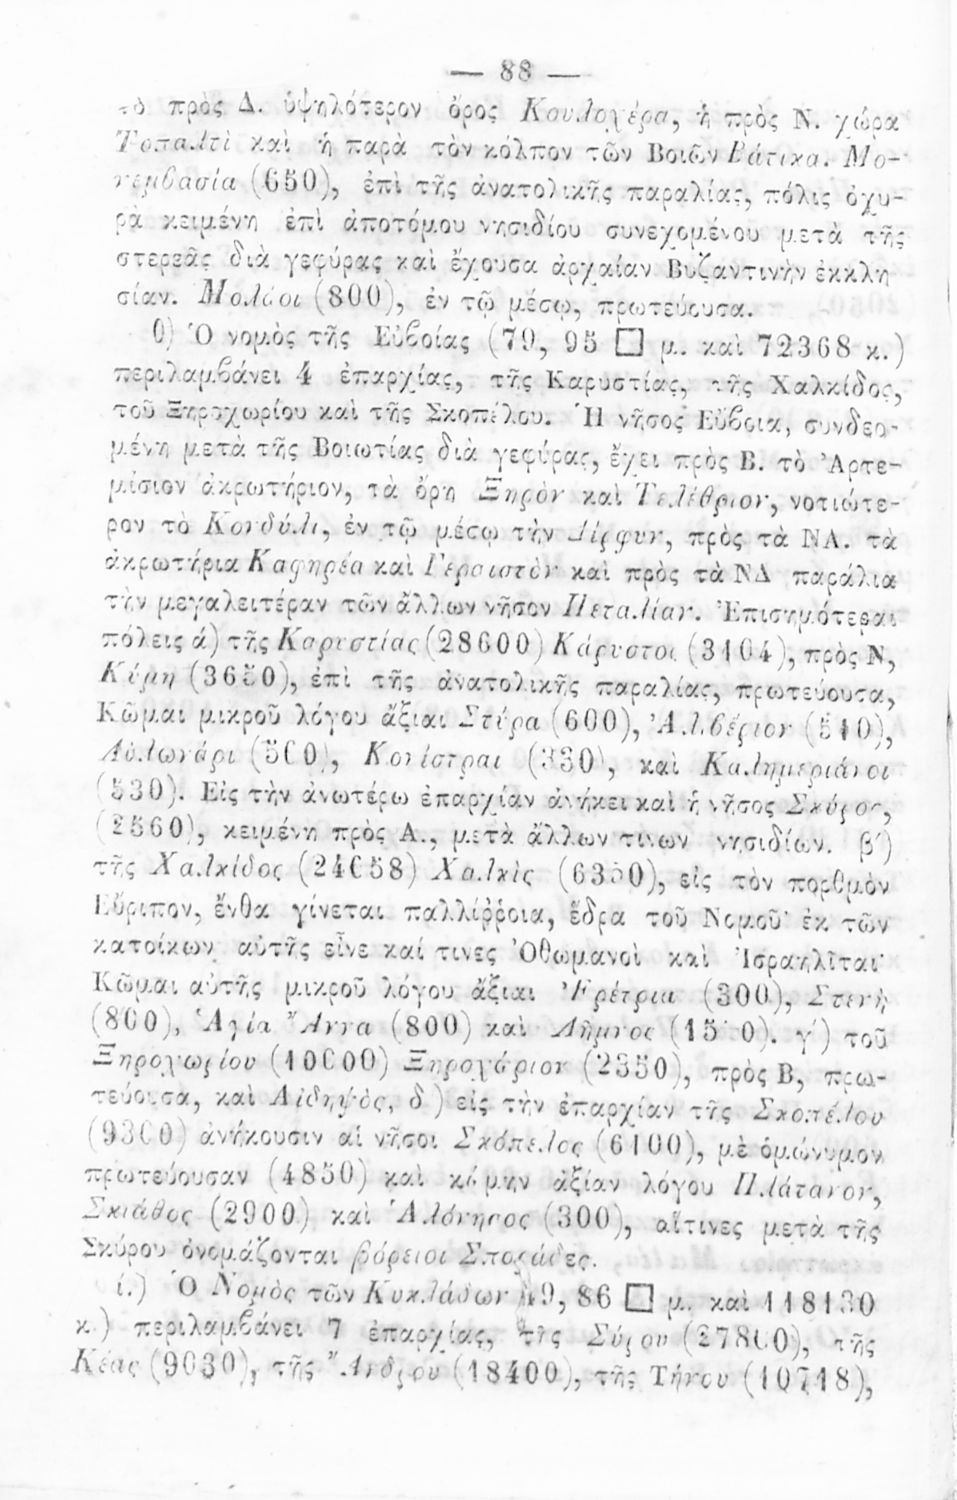 — 88 —
τὸ πρὸς Δ. ὑψηλότερον ὄρος Κουλοχέρα, ἡ πρὸς Ν. χώρα
Τοπαλτὶ καὶ ἡ παρὰ τὸν κόλπον τῶν Βοιῶν Βάτικα. Μο-
νεμβασία (650), ἐπὶ τῆς ἀνατολικῆς παραλίας, πόλις ὀχυ-
ρὰ κειμένη ἐπὶ ἀποτόμου νησιδίου συνεχομένου μετὰ τῆς
στερεᾶς διὰ γεφύρας καὶ ἔχουσα ἀρχαίαν Βυζαντινὴν ἐκκλη
σίαν. Μολάοι (800), ἐν τῷ μέσῳ, πρωτεύουσα.
θ) Ὁ νομὸς τῆς Εὐβοίας (79, 95 □ μ. καὶ 72368 κ.)
περιλαμβάνει 4 ἐπαρχίας, τῆς Καρυστίας, τῆς Χαλκίδος,
τοῦ Ξηροχωρίου καὶ τῆς Σκοπέλου. Ἡ νῆσος Εὔβοια, συνδεο-
μένη μετὰ τῆς Βοιωτίας διὰ γεφύρας, ἔχει πρὸς Β. τὸ Ἀρτε-
μίσιον ἀκρωτήριον, τὰ ὄρη Ξηρὸν καὶ Τελέθριον, νοτιώτε-
ρον τὸ Κονδύλι, ἐν τῷ μέσῳ τὴν Δίρφυν, πρὸς τὰ ΝΑ. τὰ
ἀκρωτήρια Καφηρέα καὶ Γεραιστὸν καὶ πρὸς τὰ ΝΔ παράλια
τὴν μεγαλειτέραν τῶν ἄλλων νῆσον Πεταλίαν. Ἐπισημότεραι
πόλεις ά) τῆς Καρυστίας (28600) Κάρυστος (3104), πρὸς Ν,
Κύμη (3650), ἐπὶ τῆς ἀνατολικῆς παραλίας, πρωτεύουσα,
Κῶμαι μικροῦ λόγου ἄξιαι Στύρα (600), Ἀλιβέριον (540),
Αὐλωνάρι (500), Κονίστραι (330), καὶ Καλημεριάνοι
(530). Εἰς τὴν ἀνωτέρω ἐπαρχίαν ἀνήκει καὶ ἡ νῆσος Σκύρος,
(2560), κειμένη πρὸς Α., μετὰ ἄλλων τινων νησιδίων. β')
τῆς Χαλκίδος (24658) Χαλκὶς (6350), εἰς τὸν πορθμὸν
Εὔριπον, ἔνθα γίνεται παλλίῤῥοια, ἕδρα τοῦ Νομοῦ· ἐκ τῶν
κατοίκων αὐτῆς εἶνε καί τινες Ὀθωμανοὶ καὶ Ἰσραηλῖται·
Κῶμαι αὐτῆς μικροῦ λόγου ἄξιαι Ἐρέτρια (300), Στενὴ
(800), Ἁγία Ἄννα (800) καὶ Λήμνος γ') τοῦ
Ξηροχωρίου (10600) Ξηροχώριον (2350), πρὸς Β, πρω-
τεύουσα, καὶ Αἰδηψὸς, δ') εἰς τὴν ἐπαρχίαν τῆς Σκοπέλου
(9300) ἀνήκουσιν αἱ νῆσοι Σκόπελος (6100), μὲ ὁμώνυμον
πρωτεύουσαν (4850) καὶ κώμην ἀξίαν λόγου Πλάτανον,
Σκιάθος (2900) καὶ Ἁλόνησος (300), αἵτινες μετὰ τῆς
Σκύρου ὀνομάζονται βόρειοι Σποράδες.
ί.) Ὁ Νομὸς τῶν Κυκλάδων 49, 86 □ μ. καὶ 118130
κ.) περιλαμβάνει 7 ἐπαρχίας, τῆς Σύρου (27800), τῆς
Κέας (9030), τῆς Ἄνδρου (18400), τῆς Τήνου (10718),